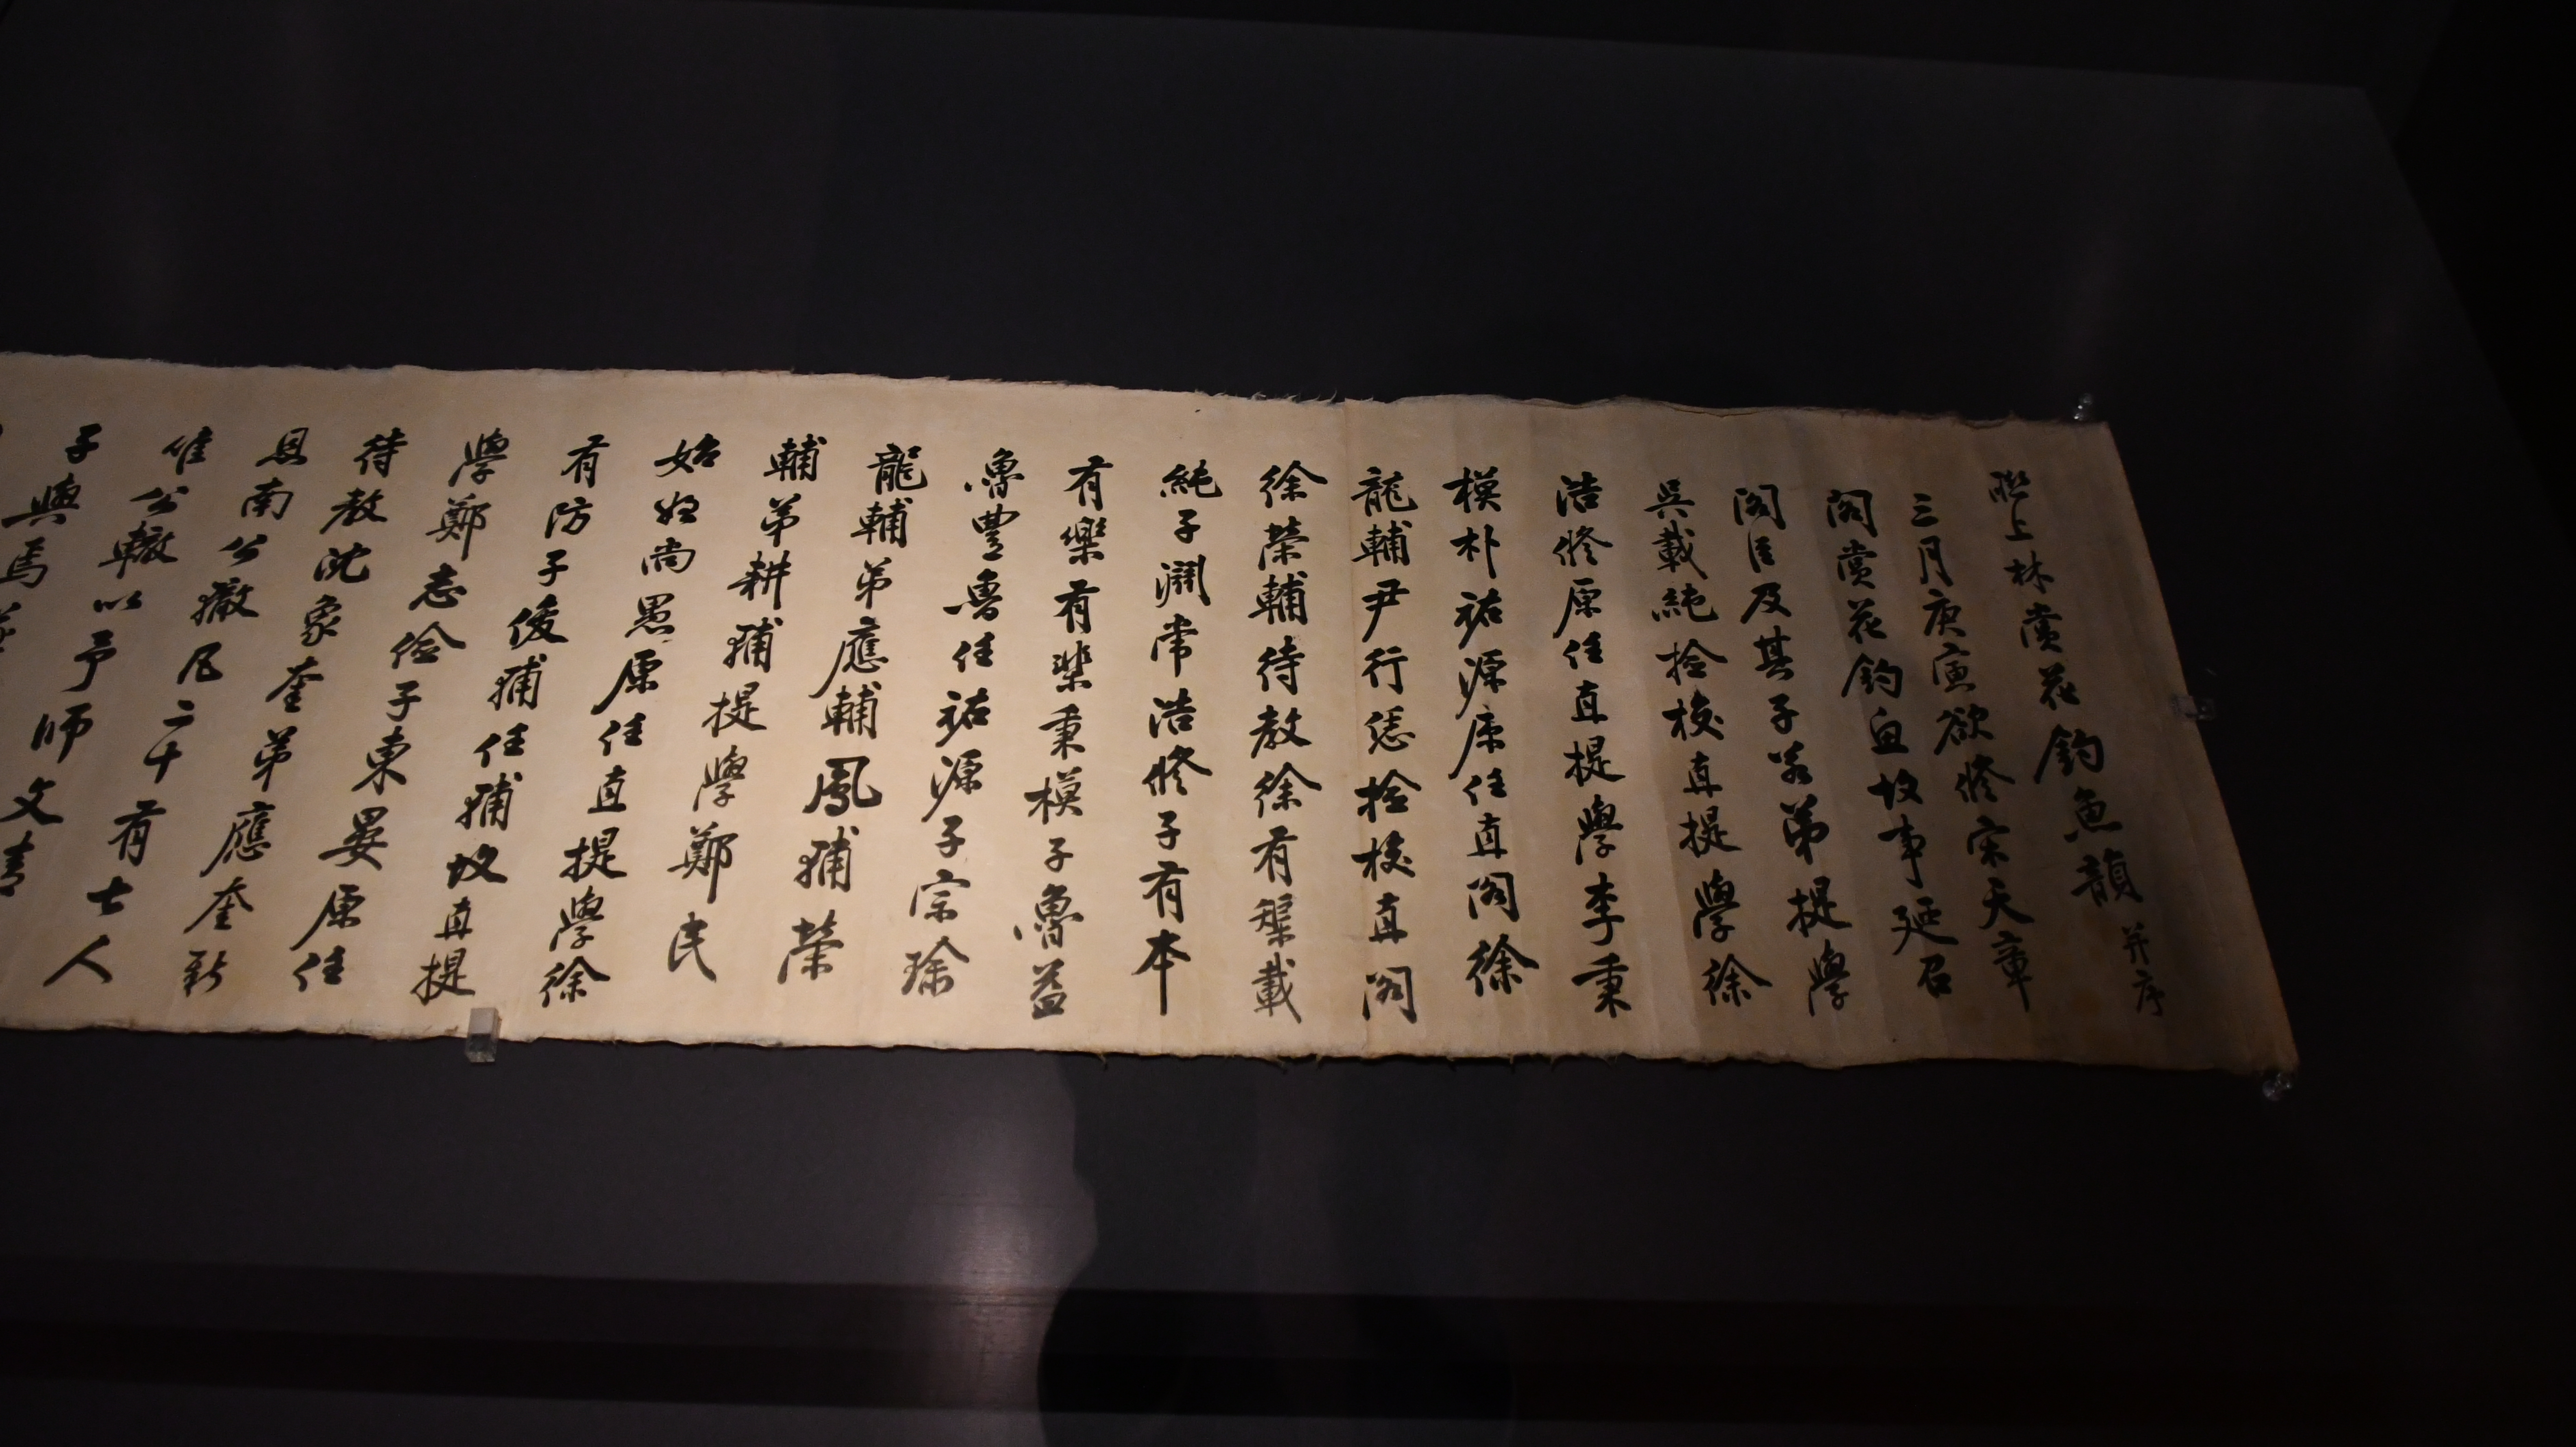 聯上林賞花釣魚韻 并序
三月庚寅欲修宋天章
閣賞花釣魚故事延召
閣臣及其子若弟提學
吳載純檢校直提學徐
浩修原任直提學李秉
模朴祐源原任直閣徐
龍輔尹行恁檢校直閣
徐榮輔待教徐有榘載
純子淵常浩修子有本
有樂有棐秉模子魯益
魯豊魯任祐源子宗
龍輔弟應輔鳳輔榮
輔弟耕輔提學鄭民
始姪尚愚原任直提學徐
有防子俊輔任輔故直提
學鄭志儉子東晏原任
待教沈象奎弟應奎新
恩南公轍凡二十有七人
惟公轍以予師文
子與焉